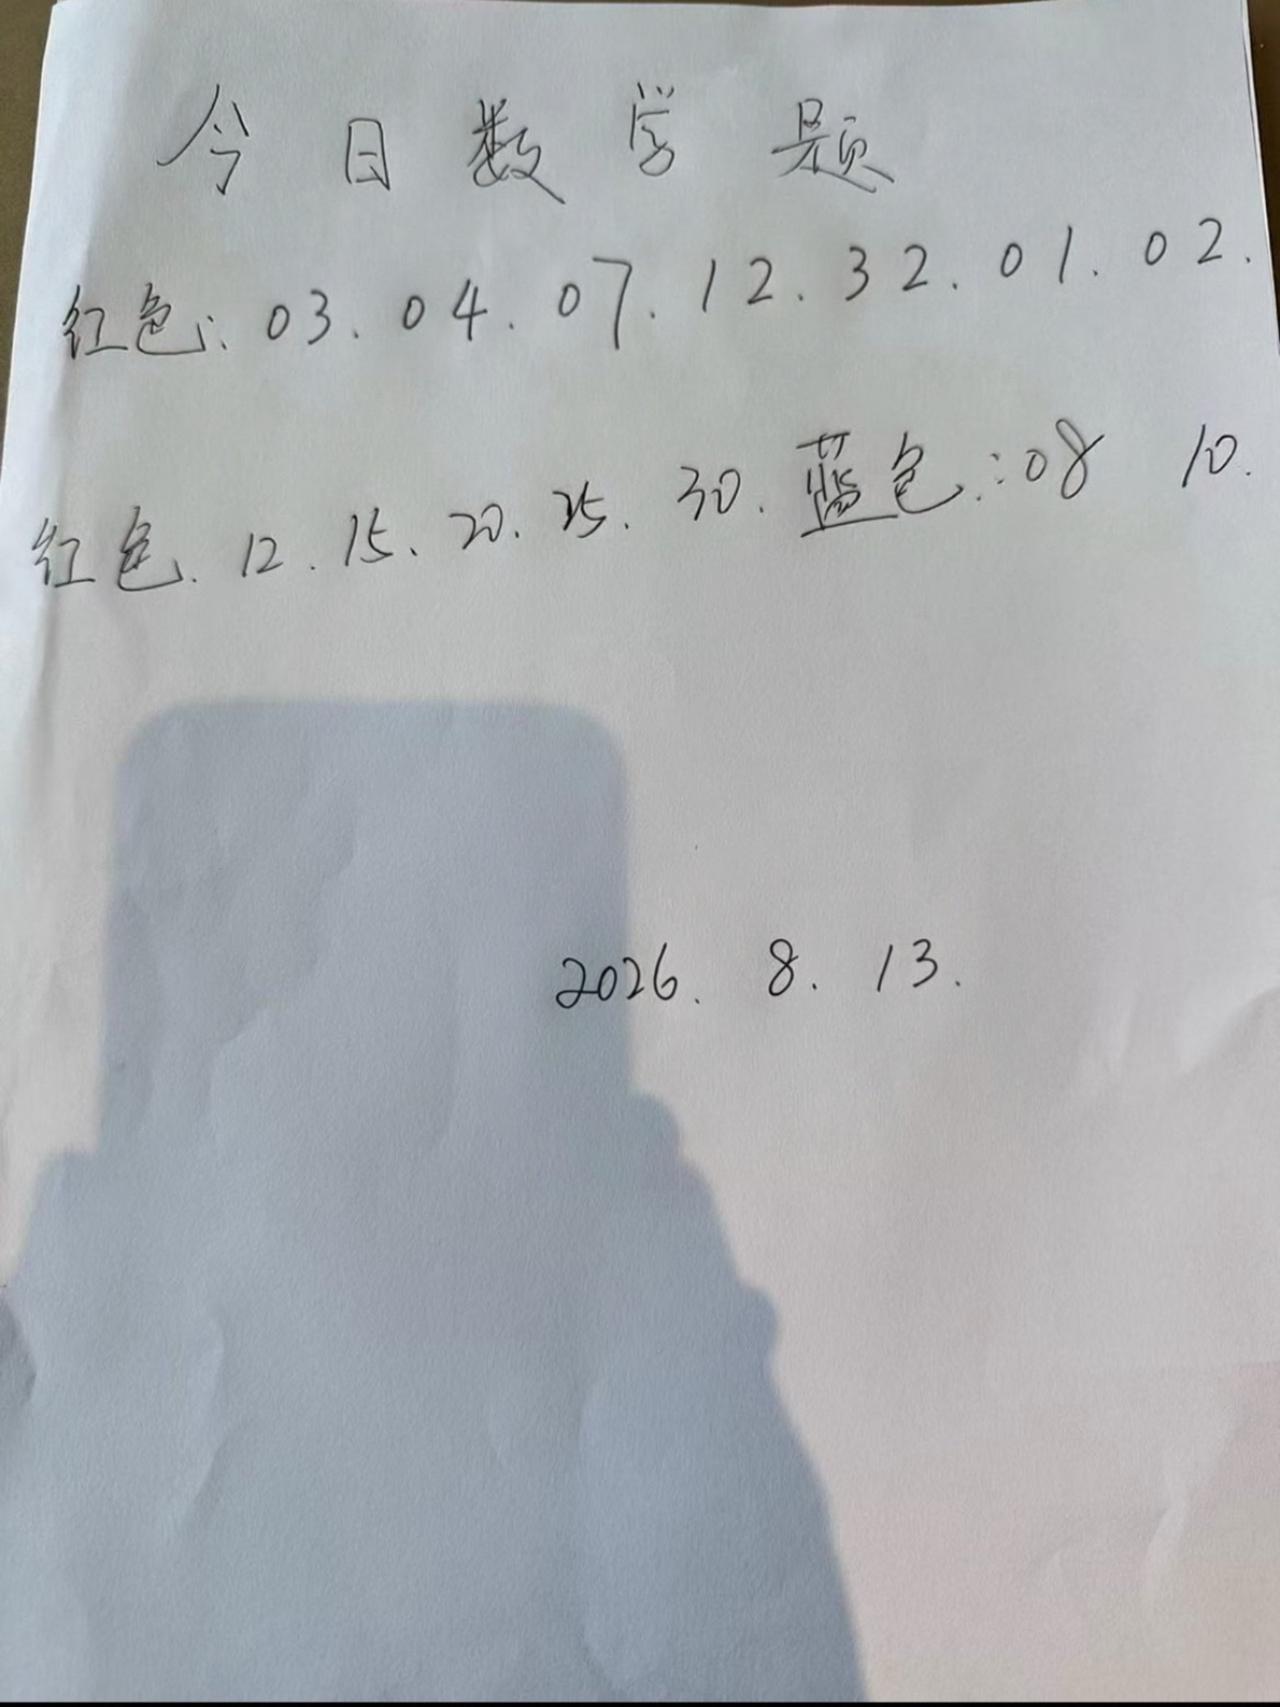 今日数学题
红色:03.04.07.12.32.01.02.
红色.12.15、20.25.30.蓝色:08 10.
2026.8.13.